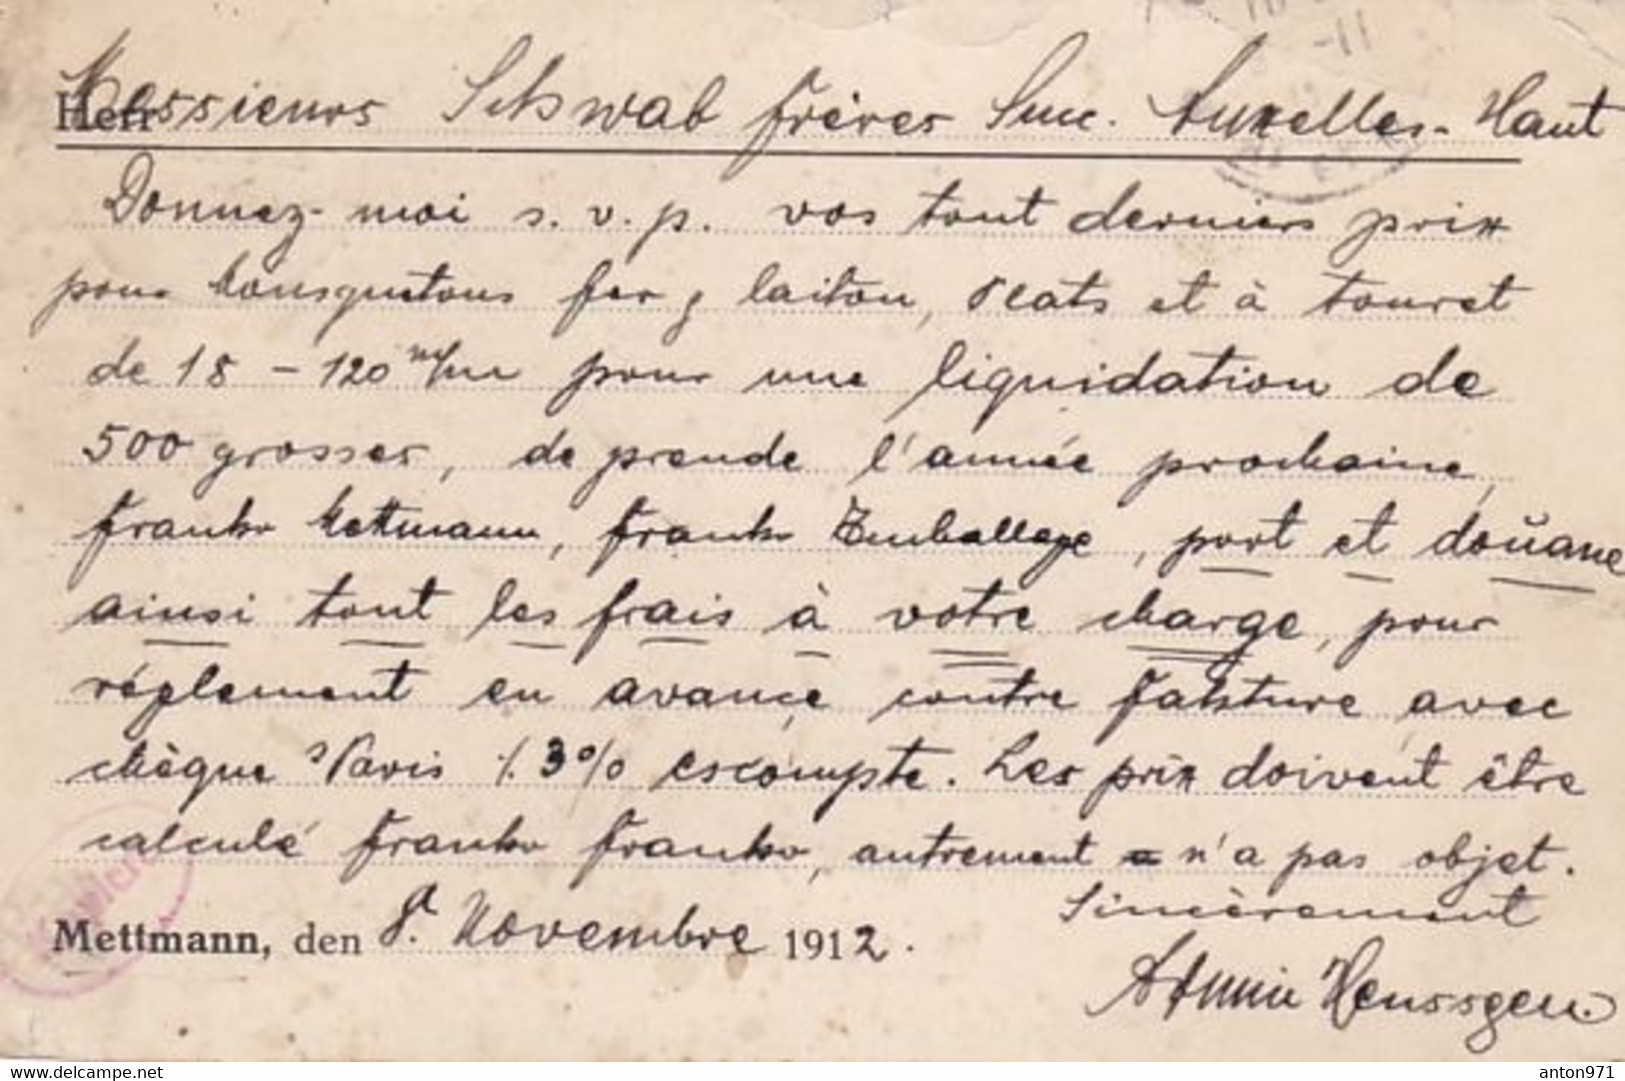 Herr Messieurs Schwab frères Succ. Auxelles-Haut
Donnez-moi s. v. p. vos tout derniers prix
pour mousquetons fer & laiton, Plats et à touret
de 18 - 120 m/m pour une liquidation de
500 grosses, de prende l'année prochaine,
franko Mettmann, franko Emballage, port et douane
ainsi tout les frais à votre charge, pour
réglement en avance contre fakture avec
chèque s/Paris ./. 3% escompte. Les prix doivent être
calculé franko franko, autrement n'a pas objet.
Sincèrement
Mettmann, den 8. Novembre 1912.
Armin Heussgen.
www.delcampe.net
anton971